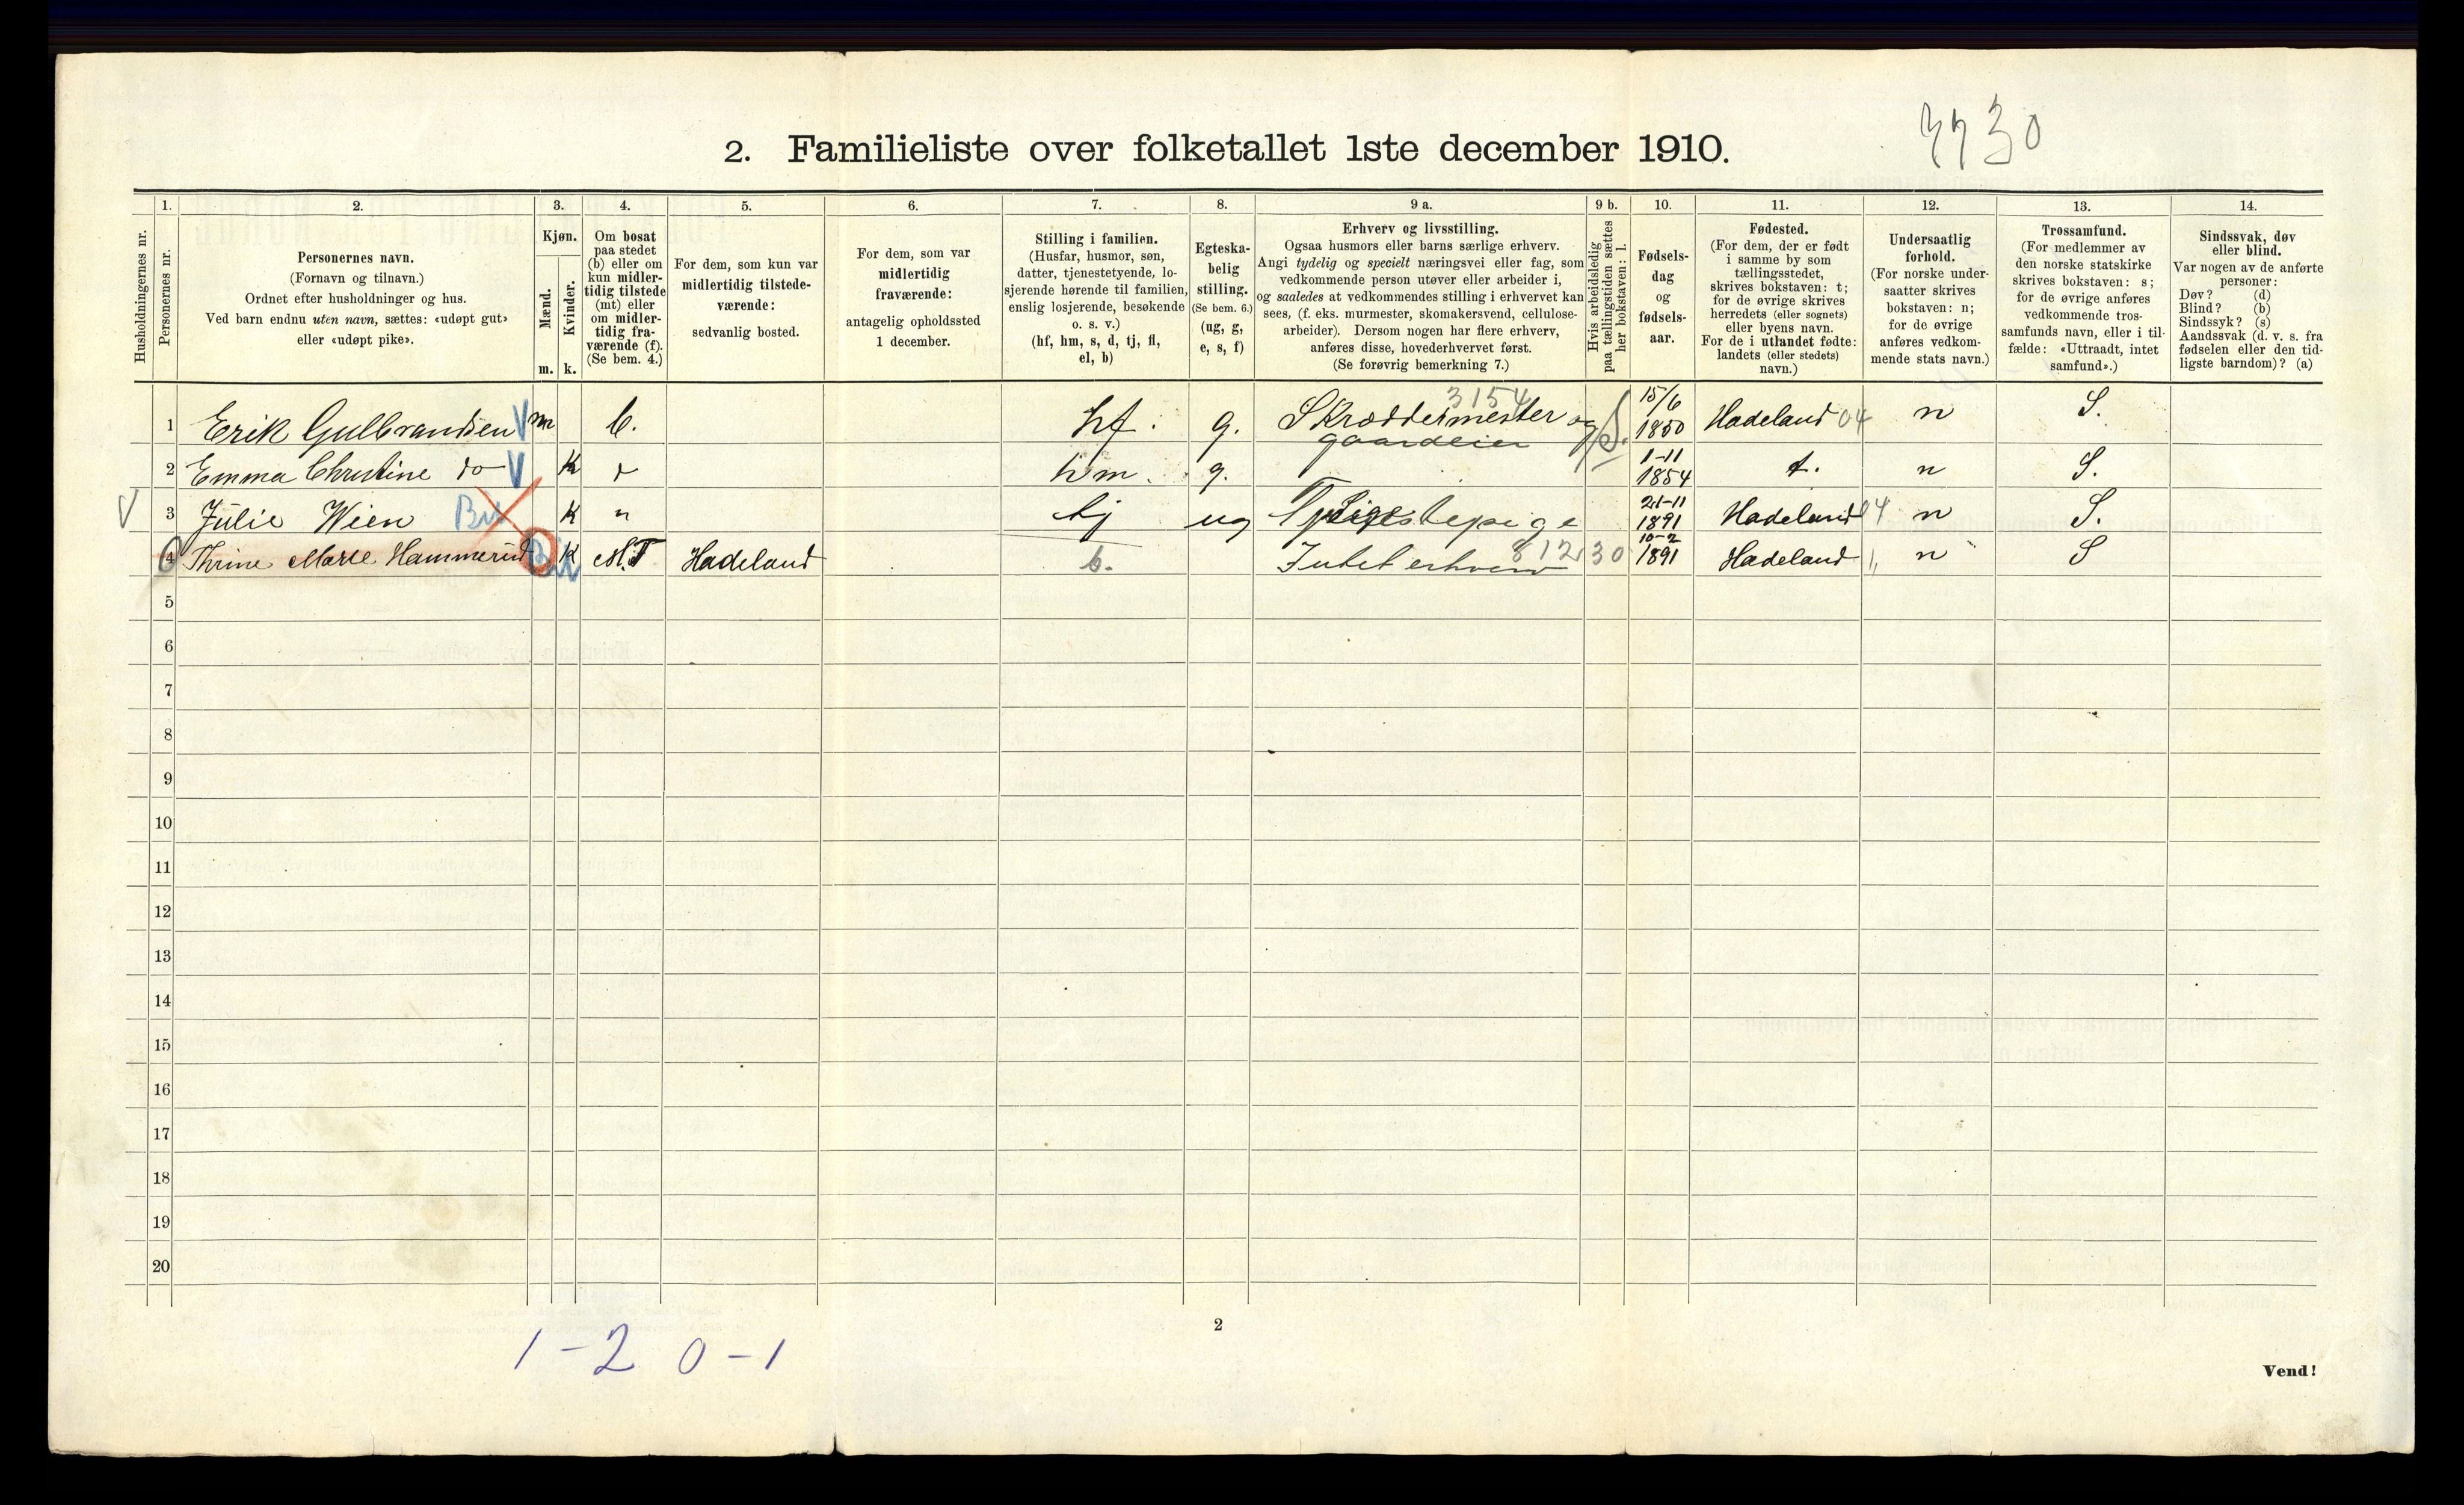 3730
2. Familieliste over folketallet 1ste december 1910.
1. 2. 3. 4. 5. 6. 7. 8. 9 a. 9 b. 10. 11. 12. 13. 14.
Husholdningernes nr.
Personernes nr.
Personernes navn.
(Fornavn og tilnavn.)
Ordnet efter husholdninger og hus.
Ved barn endnu uten navn, sættes: «udøpt gut»
eller «udøpt pike».
Kjøn.
Mænd.
Kvinder.
m. k.
Om bosat
paa stedet
(b) eller om
kun midler-
tidig tilstede
(mt) eller
om midler-
tidig fra-
værende (f).
(Se bem. 4.)
For dem, som kun var
midlertidig tilstede-
værende:
sedvanlig bosted.
For dem, som var
midlertidig
fraværende:
antagelig opholdssted
1 december.
Stilling i familien.
(Husfar, husmor, søn,
datter, tjenestetyende, lo-
sjerende hørende til familien,
enslig losjerende, besøkende
o. s. v.)
(hf, hm, s, d, tj, fl,
el, b)
Egteska-
belig
stilling.
(Se bem. 6.)
(ug, g,
e, s, f)
Erhverv og livsstilling.
Ogsaa husmors eller barns særlige erhverv.
Angi tydelig og specielt næringsvei eller fag, som
vedkommende person utøver eller arbeider i,
og saaledes at vedkommendes stilling i erhvervet kan
sees, (f. eks. murmester, skomakersvend, cellulose-
arbeider). Dersom nogen har flere erhverv,
anføres disse, hovederhvervet først.
(Se forøvrig bemerkning 7.)
Hvis arbeidsledig
paa tællingstiden sættes
her bokstaven: l.
Fødsels-
dag
og
fødsels-
aar.
Fødested.
(For dem, der er født
i samme by som
tællingsstedet,
skrives bokstaven: t;
for de øvrige skrives
herredets (eller sognets)
eller byens navn.
For de i utlandet fødte:
landets (eller stedets)
navn.)
Undersaatlig
forhold.
(For norske under-
saatter skrives
bokstaven: n;
for de øvrige
anføres vedkom-
mende stats navn.)
Trossamfund.
(For medlemmer av
den norske statskirke
skrives bokstaven: s;
for de øvrige anføres
vedkommende tros-
samfunds navn, eller i til-
fælde: «Uttraadt, intet
samfund».)
Sindssvak, døv
eller blind.
Var nogen av de anførte
personer:
Døv? (d)
Blind? (b)
Sindssyk? (s)
Aandssvak (d. v. s. fra
fødselen eller den tid-
ligste barndom)? (a)
3154
1 Erik Gulbrandsen V m b. hf. g. Skræddermester og S. 15/6 1850 Hadeland 04 n S.
gaardeier
2 Emma Christine do V k hm. g. 1-11 1854 t. n S.
V 3 Julie Wien k tj ug 21-11 1891 Hadeland 04 n S.
4 Thrine Marie Hammerud k M.T Hadeland b. Intet erhverv 812 30 10-2 1891 Hadeland n S
5
6
7
8
9
10
11
12
13
14
15
16
17
18
19
20
2
1-2 0-1
Vend!